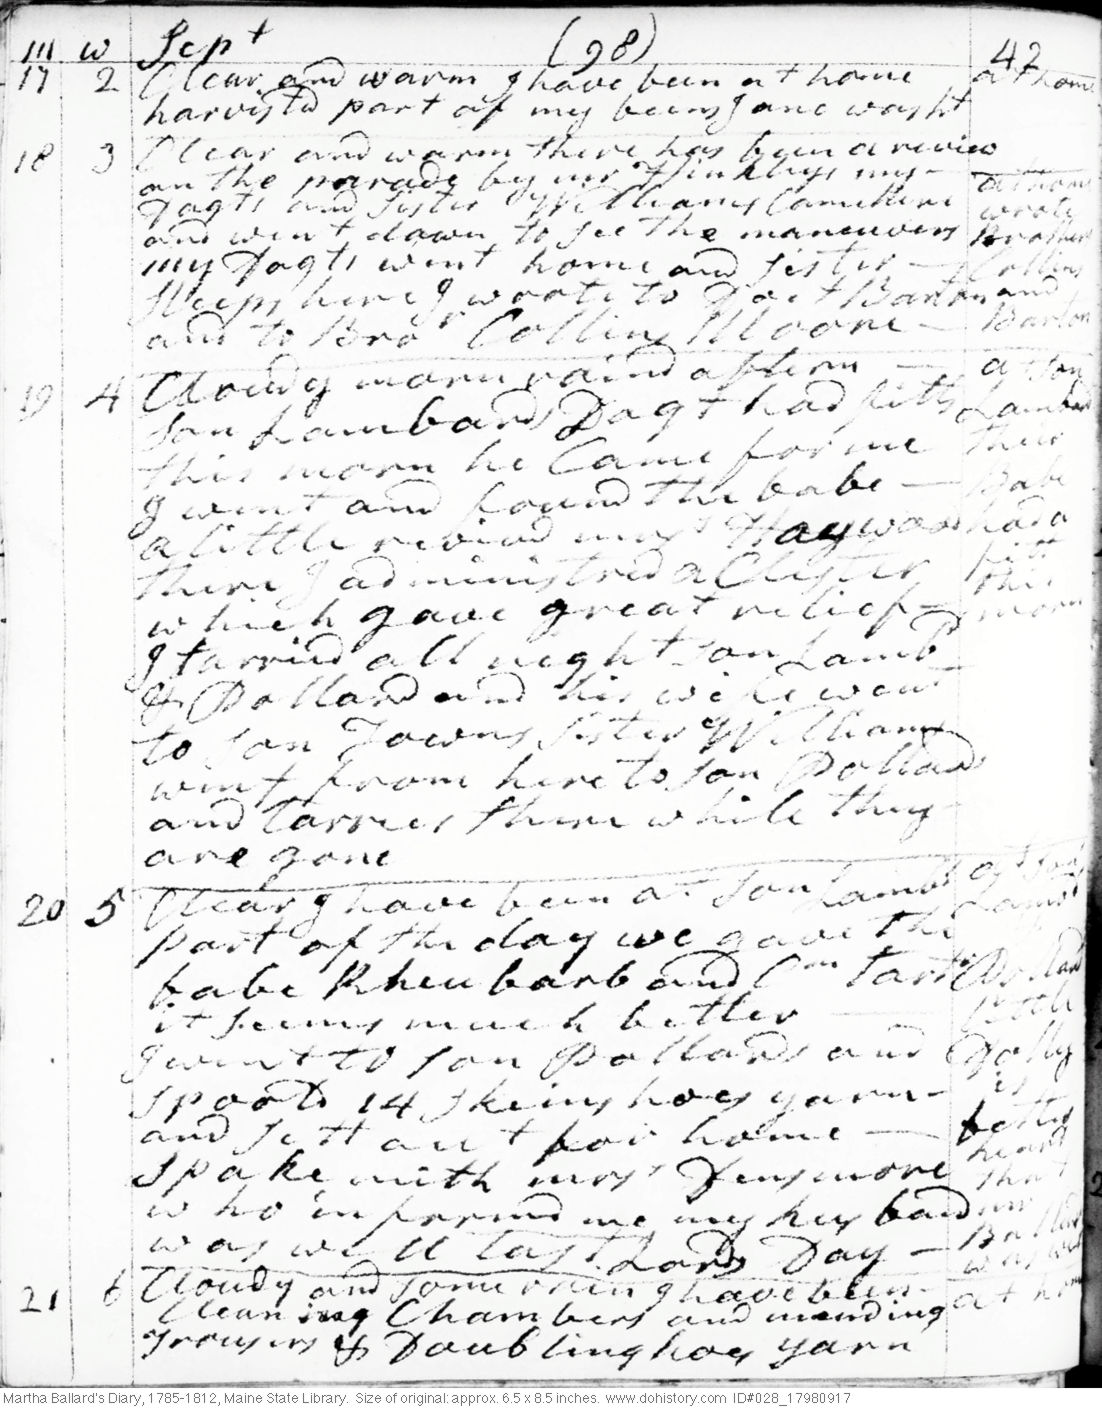 m w Sept (98) 42
17 2 Clear and warm I have been at home at home
harvistd part of my beens Jane washt
18 3 Clear and warm there has been a review
on the parade by mr Hinkleys my - at home
Dagts and sister Williams Came here wrote
and went down to see the maneuvers Brothers
my Dagts went home and sister - Collins
sleeps here I wrote to Doct Barton and
and to Bro Collins Moore - Barton
19 4 Cloudy morn raind aftern - at son
son Lambards Dagt had fitts Lambard
this morn he Came for me their
I went and found the babe - Babe
a little revivd mrs Haywood had a
there I administred a Clister fitt
which gave great relief - this
I tarried all night son Lambd morn
& Pollard and his wife went
to son Towns sister Williams
went from here to son Pollards
and Tarries there while they
are gone
20 5 Clear I have been at son Lambds at son
part of the day we gave the Lambds
babe Rheubarb and Cm Tartr Pollard
it seems much better - little
I went to son Pollards and Dolly
spoold 14 skeins hoes yarn - is
and sett out for home - better
Spake with mrs Densmore heard that
who informd me my husband mr
was well last Lords Day - Ballard was well
21 6 Cloudy and some rain I have been - at home
Cleaning Chambers and mending
Trousers & Doubling hoes yarn
Martha Ballard's Diary, 1785-1812, Maine State Library. Size of original: approx. 6.5 x 8.5 inches. www.dohistory.com ID#028_17980917